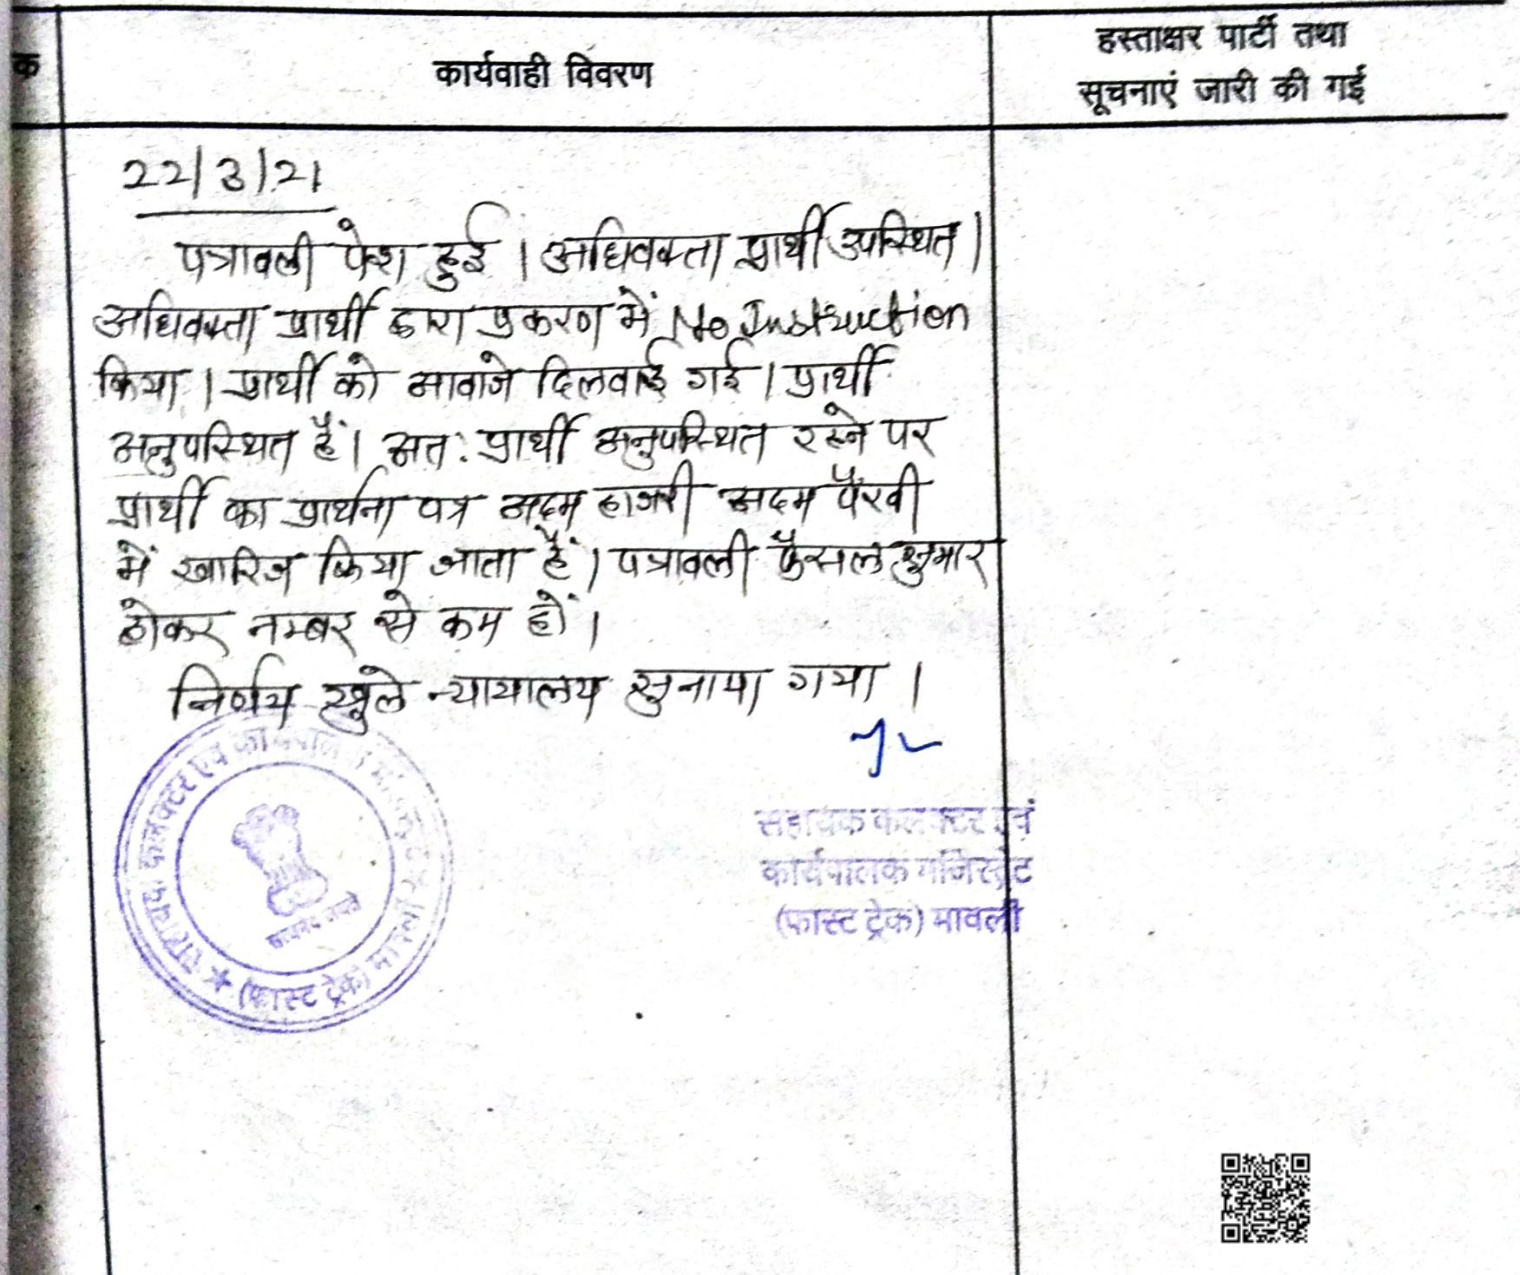 क
कार्यवाही विवरण
हस्ताक्षर पार्टी तथा
सूचनाएं जारी की गई
22/3/21
पत्रावली पेश हुई । अधिवक्ता प्रार्थी उपस्थित ।
अधिवक्ता प्रार्थी द्वारा प्रकरण में No Instruction
किया । प्रार्थी को आवाजे दिलवाई गई । प्रार्थी
अनुपस्थित हैं । अतः प्रार्थी अनुपस्थित रहने पर
प्रार्थी का प्रार्थना पत्र अदम हाजरी अदम पैरवी
में खारिज किया जाता हैं । पत्रावली फैसल शुमार
होकर नम्बर से कम हों ।
निर्णय खुले न्यायालय सुनाया गया ।
सहायक कलक्टर एवं
कार्यपालक मजिस्ट्रेट
(फास्ट ट्रेक) मावली
सहायक कलक्टर एवं (फास्ट ट्रेक) मावली
सत्यमेव जयते